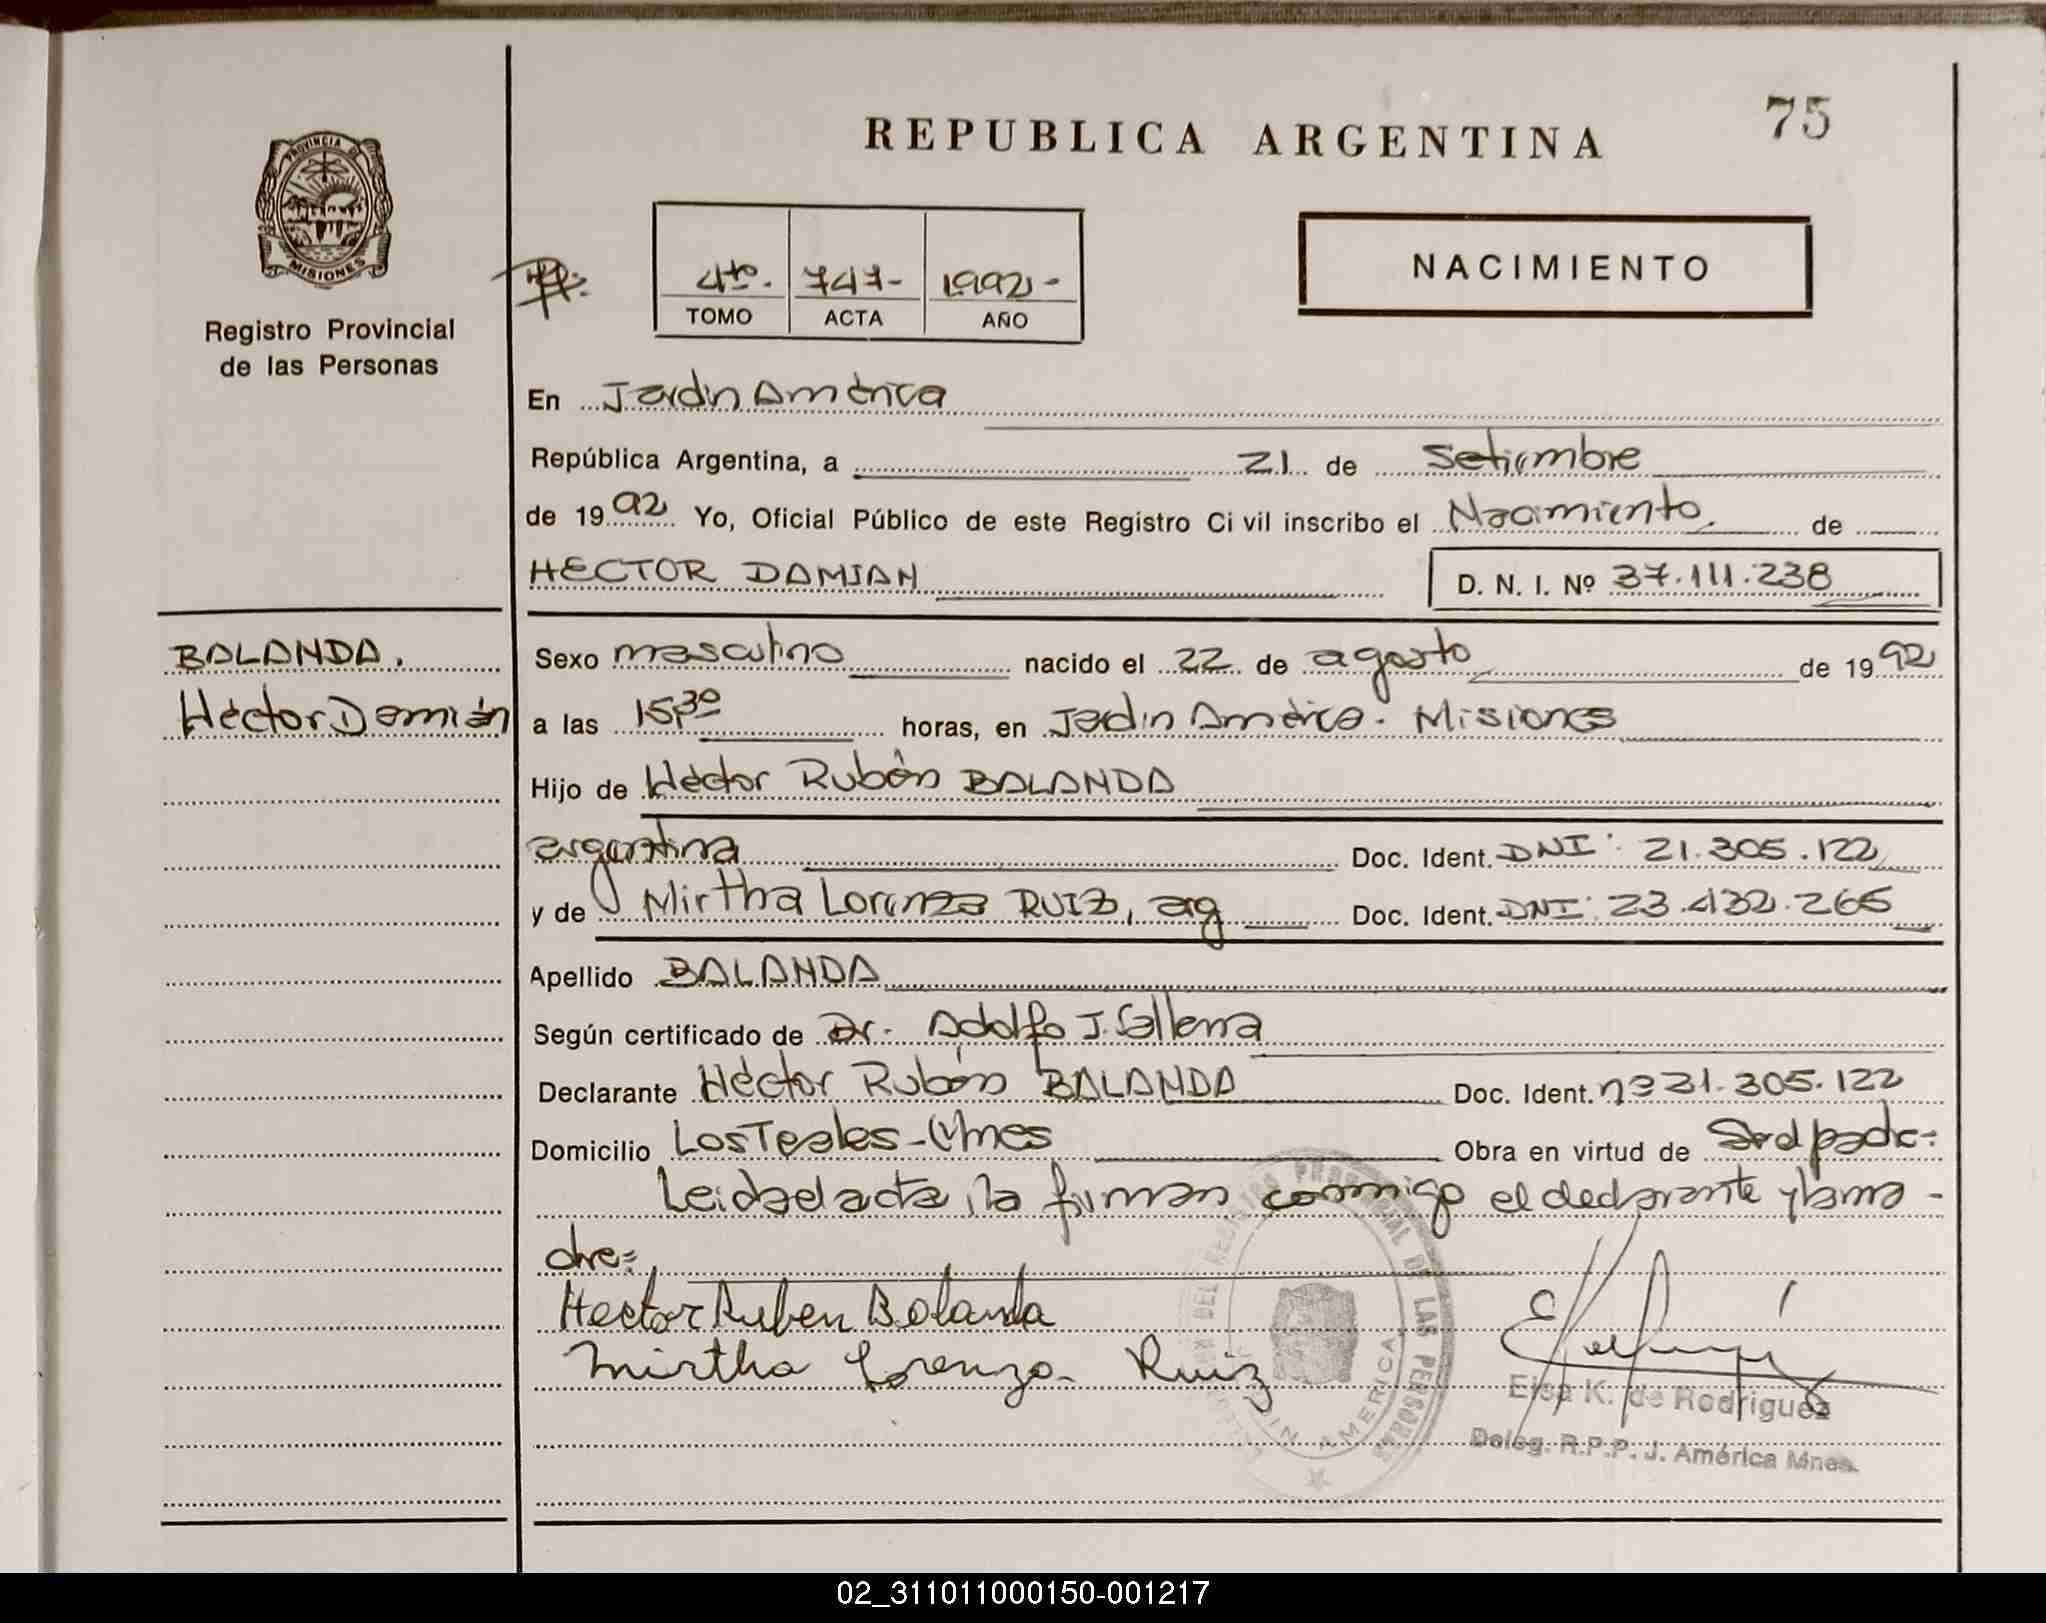 75
REPUBLICA ARGENTINA
PROVINCIA DE
MISIONES
Registro Provincial
de las Personas
4to. 747- 1992-
TOMO ACTA AÑO
NACIMIENTO
En Jardin América
República Argentina, a 21 de Setiembre
de 1992 Yo, Oficial Público de este Registro Civil inscribo el Nacimiento de
HECTOR DAMIAN D. N. I. Nº 37.111.238
BALANDA.
Héctor Damián
Sexo masculino nacido el 22 de agosto de 1992
a las 15,30 horas, en Jardin América. Misiones
Hijo de Héctor Rubén BALANDA
argentina Doc. Ident. DNI: 21.305.122
y de Mirtha Lorenza RUIZ, arg Doc. Ident. DNI: 23.432.265
Apellido BALANDA
Según certificado de Dr. Adolfo J.
Declarante Héctor Rubén BALANDA Doc. Ident. nº 21.305.122
Domicilio Los Teales - Mnes Obra en virtud de padre:
Leida el acta, la firman conmigo el declarante y la ma-
dre=
Hector Ruben Balanda
Mirtha Lorenza Ruiz
PROVINCIAL DE LAS PERSONAS
AMERICA
Elsa K. de Rodriguez
Deleg. R.P.P. J. América Mnes.
02_311011000150-001217